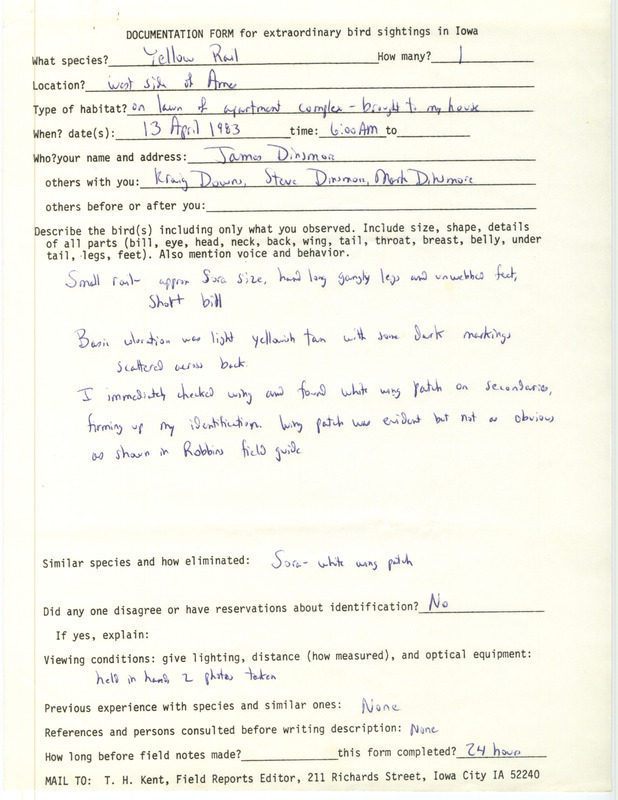 DOCUMENTATION FORM for extraordinary bird sightings in Iowa
What species? Yellow Rail How many? 1
Location? west side of Ames
Type of habitat? on lawn of apartment complex - brought to my house
When? date(s): 13 April 1983 time: 6:00 AM to
Who? your name and address: James Dinsmore
others with you: Kraig Downs, Steve Dinsmore, Mark Dinsmore
others before or after you:
Describe the bird(s) including only what you observed. Include size, shape, details
of all parts (bill, eye, head, neck, back, wing, tail, throat, breast, belly, under
tail, legs, feet). Also mention voice and behavior.
Small rail - approx Sora size, had long gangly legs and unwebbed feet,
Short bill
Basic coloration was light yellowish tan with some dark markings
scattered across back.
I immediately checked wing and found white wing patch on secondaries,
firming up my identification. Wing patch was evident but not as obvious
as shown in Robbins field guide
Similar species and how eliminated: Sora - white wing patch
Did any one disagree or have reservations about identification? No
If yes, explain:
Viewing conditions: give lighting, distance (how measured), and optical equipment:
held in hand, 2 photos taken
Previous experience with species and similar ones: None
References and persons consulted before writing description: None
How long before field notes made? this form completed? 24 hours
MAIL TO: T. H. Kent, Field Reports Editor, 211 Richards Street, Iowa City IA 52240